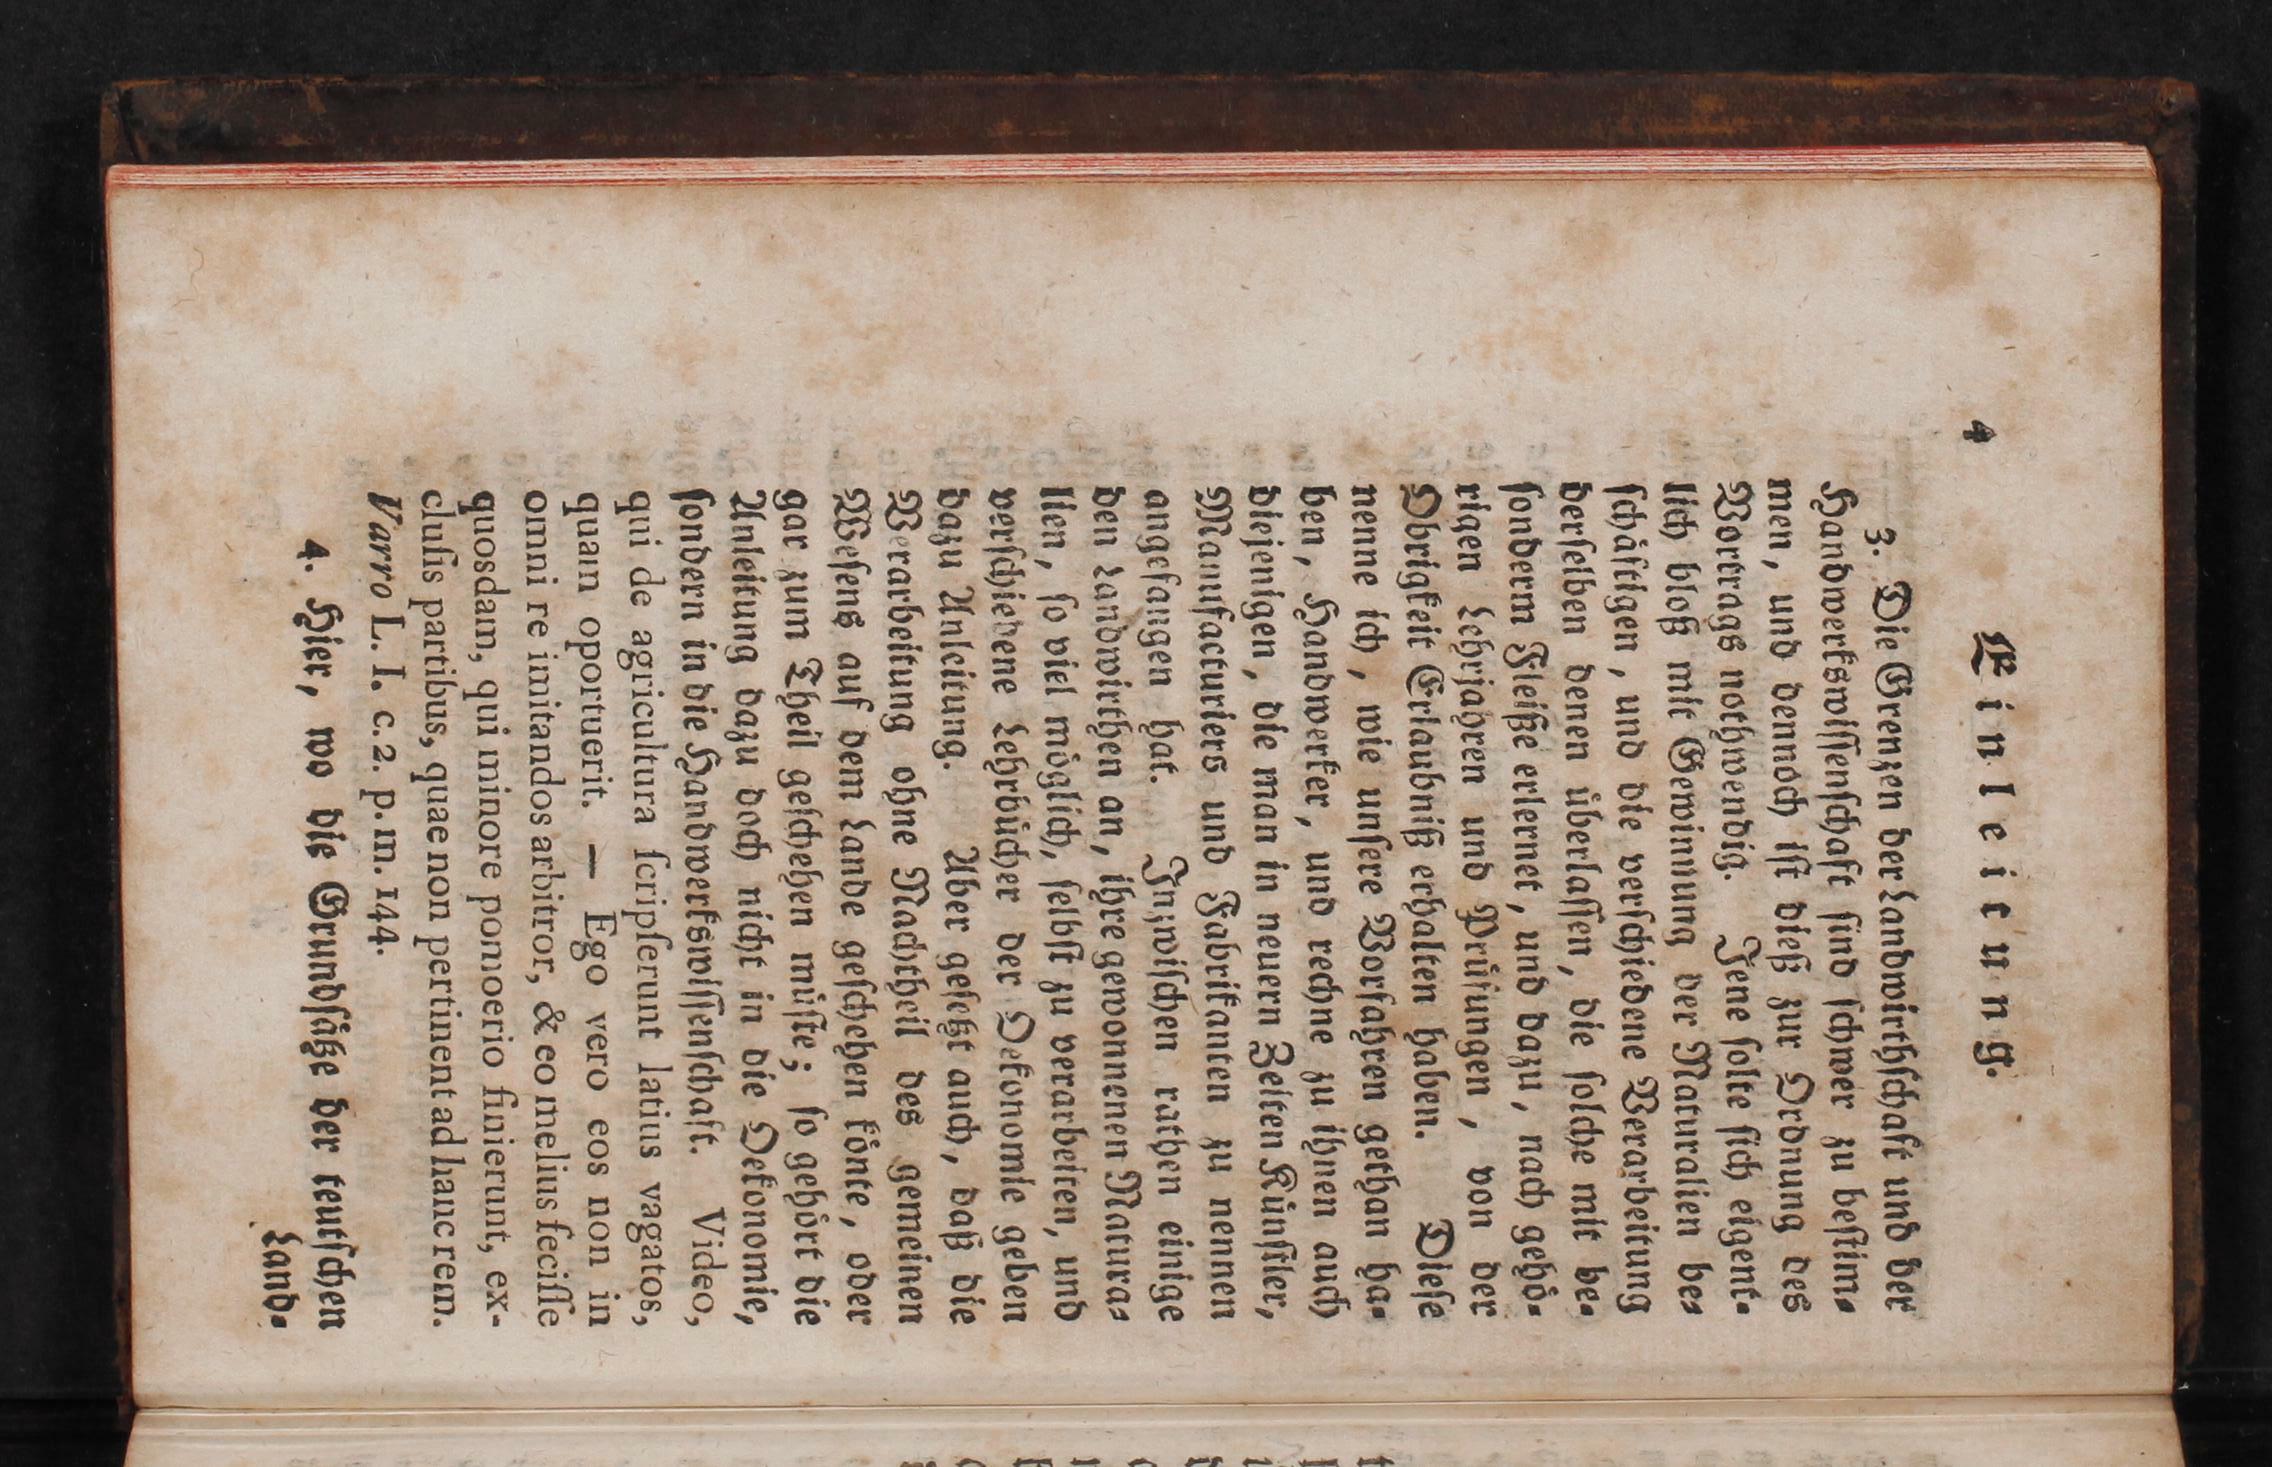 4 Einleitung.
3. Die Grenzen der Landwirthschaft und der
Handwerkswissenschaft sind schwer zu bestim-
men, und dennoch ist dieß zur Ordnung des
Vortrags nothwendig. Jene solte sich eigent-
lich bloß mit Gewinnung der Naturalien be-
schäftigen, und die verschiedene Verarbeitung
derselben denen überlassen, die solche mit be-
sonderm Fleiße erlernet, und dazu, nach gehö-
rigen Lehrjahren und Prüfungen, von der
Obrigkeit Erlaubniß erhalten haben. Diese
nenne ich, wie unsere Vorfahren gethan ha-
ben, Handwerker, und rechne zu ihnen auch
diejenigen, die man in neuern Zeiten Künstler,
Manufacturiers und Fabrikanten zu nennen
angefangen hat. Inzwischen rathen einige
den Landwirthen an, ihre gewonnenen Natura-
lien, so viel möglich, selbst zu verarbeiten, und
verschiedene Lehrbücher der Oekonomie geben
dazu Anleitung. Aber gesetzt auch, daß die
Verarbeitung ohne Nachtheil des gemeinen
Wesens auf dem Lande geschehen könte, oder
gar zum Theil geschehen müste; so gehört die
Anleitung dazu doch nicht in die Oekonomie,
sondern in die Handwerkswissenschaft. Video,
qui de agricultura ſcripſerunt latius vagatos,
quam oportuerit. — Ego vero eos non in
omni re imitandos arbitror, & eo melius feciſſe
quosdam, qui minore pomoerio finierunt, ex-
cluſis partibus, quae non pertinent ad hanc rem.
Varro L. I. c. 2. p. m. 144.
4. Hier, wo die Grundsätze der teutschen
Land-